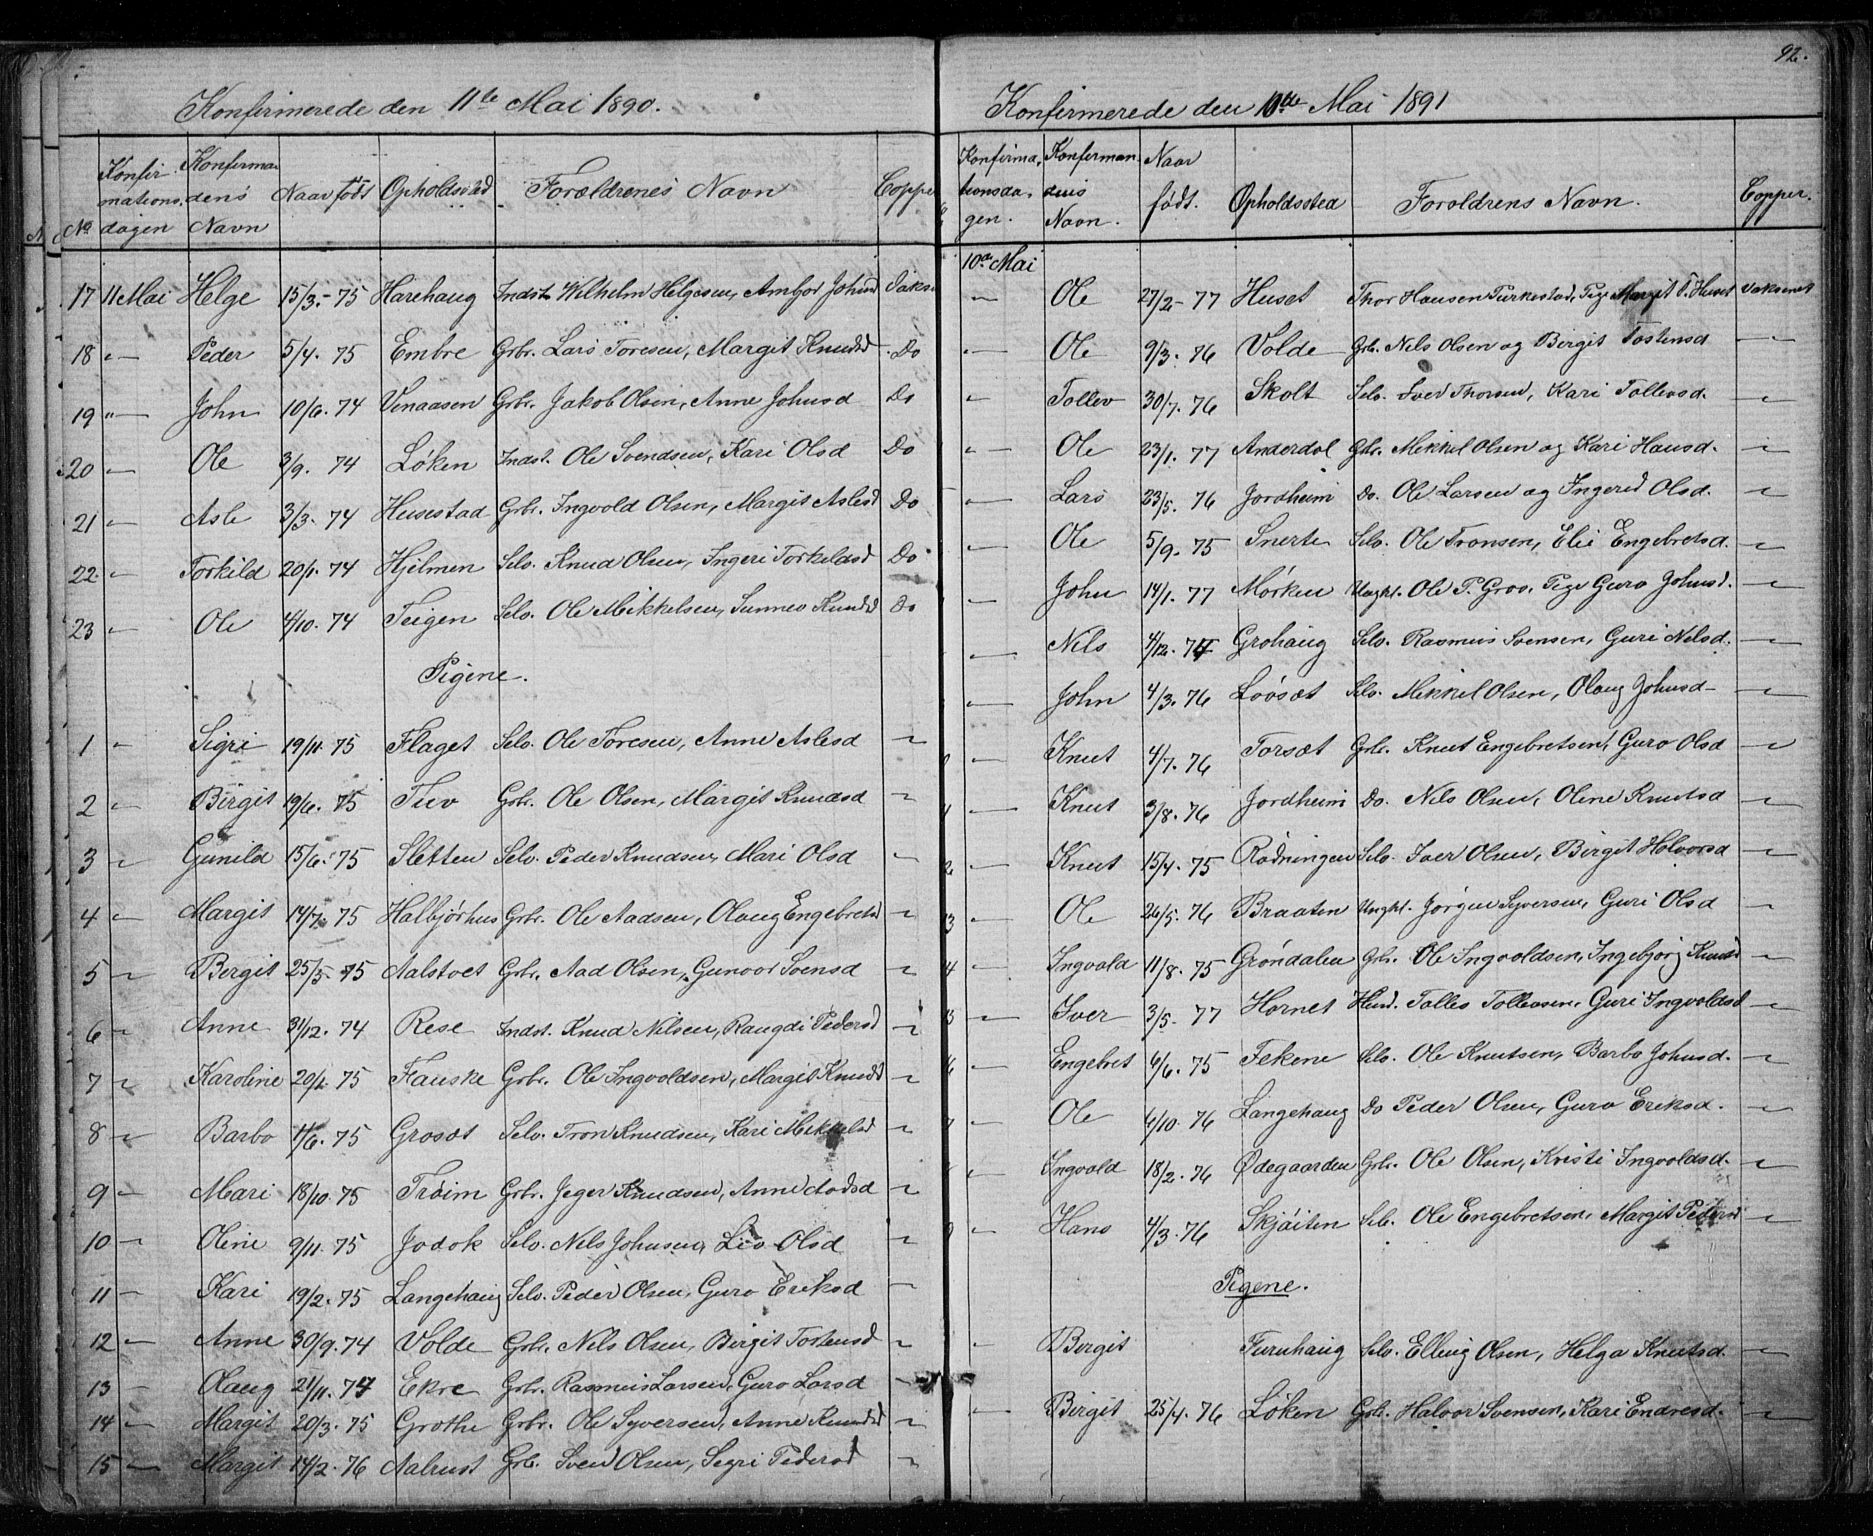 92.
Konfirmerede den 11te Mai 1890.
No Konfirmationsdagen Konfirmandens Navn Naar født Opholdssted Forældrenes Navn Copper
17 11 Mai Helge 15/3 - 75 Harehaug Indst. Wilhelm Helgesen, Ambjor Johnsd Vaks
18 " Peder 5/4. 75 Embre Grbr. Lars Toresen, Margit Knudsd Do
19 " John 10/6. 74 Venaasen Grbr. Jakob Olsen, Anne Johnsd Do
20 " Ole 3/9. 74 Løken Indst. Ole Svendsen, Kari Olsd Do
21 " Asle 3/3. 74 Husestad Grbr. Ingvold Olsen, Margit Aslesd Do
22. " Torkild 20/1. 74 Hjelmen Selv. Knud Olsen, Ingeri Torkildsd Do
23 " Ole 4/10. 74 Teigen Selv. Ole Mikkelsen, Sunnev Knudsd Do
Pigene.
1 " Sigri 19/11. 75 Flaget Selv. Ole Toresen, Anne Aslesd "
2 " Birgit 19/6. 75 Tuv Grbr. Ole Olsen, Margit Knudsd "
3 " Gunild 15/6. 75 Sletten Selv. Peder Knudsen, Mari Olsd "
4 " Margit 14/7. 75 Halbjørhus Grbr. Ole Aadsen, Olaug Engebretsd "
5 " Bergit 25/5. 75 Aalstvet Grbr. Aad Olsen, Gunvor Svensd "
6 " Anne 31/12. 74 Rese Indst. Knud Nilsen, Rangdi Pedersd "
7 " Karoline 75 Fauske Grbr. Ole Ingvoldsen, Margit Knudsd "
8 " Barbo 75 Grosæt Selv. Tron Knudsen, Kari Mikkelsd "
9 " Mari 18/10. 75 Trøim Grbr. Jeger Knudsen, Anne Aadsd "
10 " Oline 9/11. 75 Jodok Selv. Nels Johnsen, Liv Olsd "
11 " Kari 19/2. 75 Langehaug Selv. Peder Olsen, Guro Eriksd "
12 " Anne 30/9. 74 Volde Grbr. Nels Olsen, Birgit Tostensd "
13 " Olaug 21/11. 74 Ekre Grbr. Rasmus Larsen, Guro Larsd "
14 " Margit 20/3. 75 Grothe Grbr. Ole Syversen, Anne Knudsd "
15 " Margit 14/2. 76 Aalrust Grb. Svend Olsen, Segri Pedersd "
Konfirmerede den 10de Mai 1891
Konfirmationsdagen. Konfermandens Navn. Naar født. Opholdssted Foreldrens Navn. Copper.
10de Mai
" Ole 27/2 - 77 Huset Thor Hansen Turkestad, Pige Margit T. Huset Vaksenet
" Ole 9/3. 76 Volde Grb. Nels Olsen og Birgit Tostensd "
" Tollev 30/7. 76 Skolt Selv. Iver Thorsen, Kari Tollevsd. "
" Ole 23/1. 77 Anderdal Grb. Mikkel Olsen og Kari Hansd. "
" Lars 23/5. 76 Jordheim Do. Ole Larsen og Ingered Olsd. "
" Ole 5/9. 75 Snerte Selv. Ole Tronsen, Eli Engebretsd. "
" John 14/1. 77 Mørken Unghl. Ole P. Grov, Pige Guro Johnsd. "
" Nils 4/12. Grohaug Selv. Rasmus Svensen, Guri Nelsd. "
" John 4/3. 76 Lovsæt Selv. Mikkel Olsen, Olaug Johnsd "
" Knut 4/7. 76 Torsæt Grb. Knut Engebretsen, Guro Olsd "
" Knut 3/8. 76 Jordheim Do. Nels Olsen, Oline Knutsd "
" Knut 15/4. 75 Rødningen Selv. Iver Olsen, Birgit Halvorsd "
" Ole 26/5. 76 Braaten Unghl. Jørgen Syversen, Guri Olsd "
" Ingvald 11/8. 75 Grøndalen Grb. Ole Ingvoldsen, Ingebjørg Knutsd "
" Iver 3/5. 77 Hornet Husd. Tolles Tollevsen, Guri Ingvoldsd "
" Engebret 6/6. 75 Fekene Selv. Ole Knutsen, Barbo Johnsd. "
" Ole 6/10. 76 Langehaug Do Peder Olsen, Guro Eriksd. "
" Ingvald 18/2. 76 Ødegaarden Grb. Ole Olsen, Kristi Ingvoldsd. "
" Hans 4/3. 76 Skjøiten Selv. Ole Engebretsen, Margit Pedersd "
Pigene.
" Birgit Furuhaug Selv. Elling Olsen, Helga Knutsd. "
" Birgit 25/4. 76 Løken Grb. Halvor Svensen, Kari Endresd. "